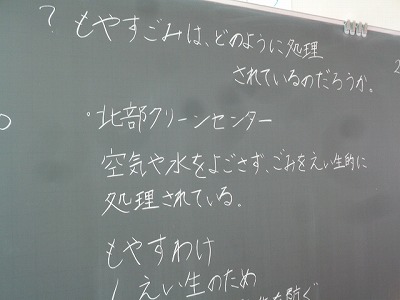 ? もやすごみは、どのように処理
されているのだろうか。
・北部クリーンセンター
空気や水をよごさず、ごみをえい生的に
処理されている。
もやすわけ
1 えい生のため
を防ぐ